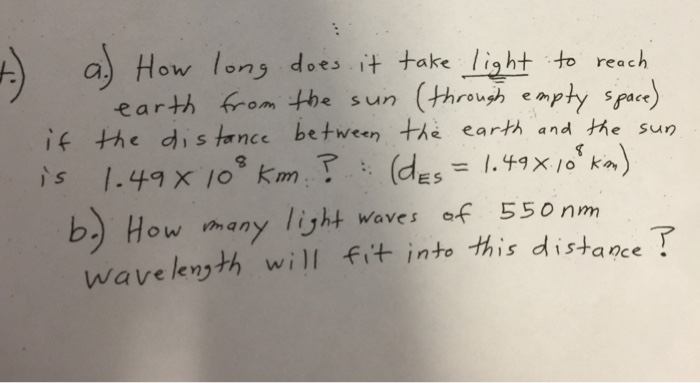 a.) How long does it take light to reach
earth from the sun (through empty space)
if the distance between the earth and the sun
is 1.49 x 10⁸ Km. ? : (dES = 1.49 x 10⁸ km)
b.) How many light waves of 550 nm
wavelength will fit into this distance ?